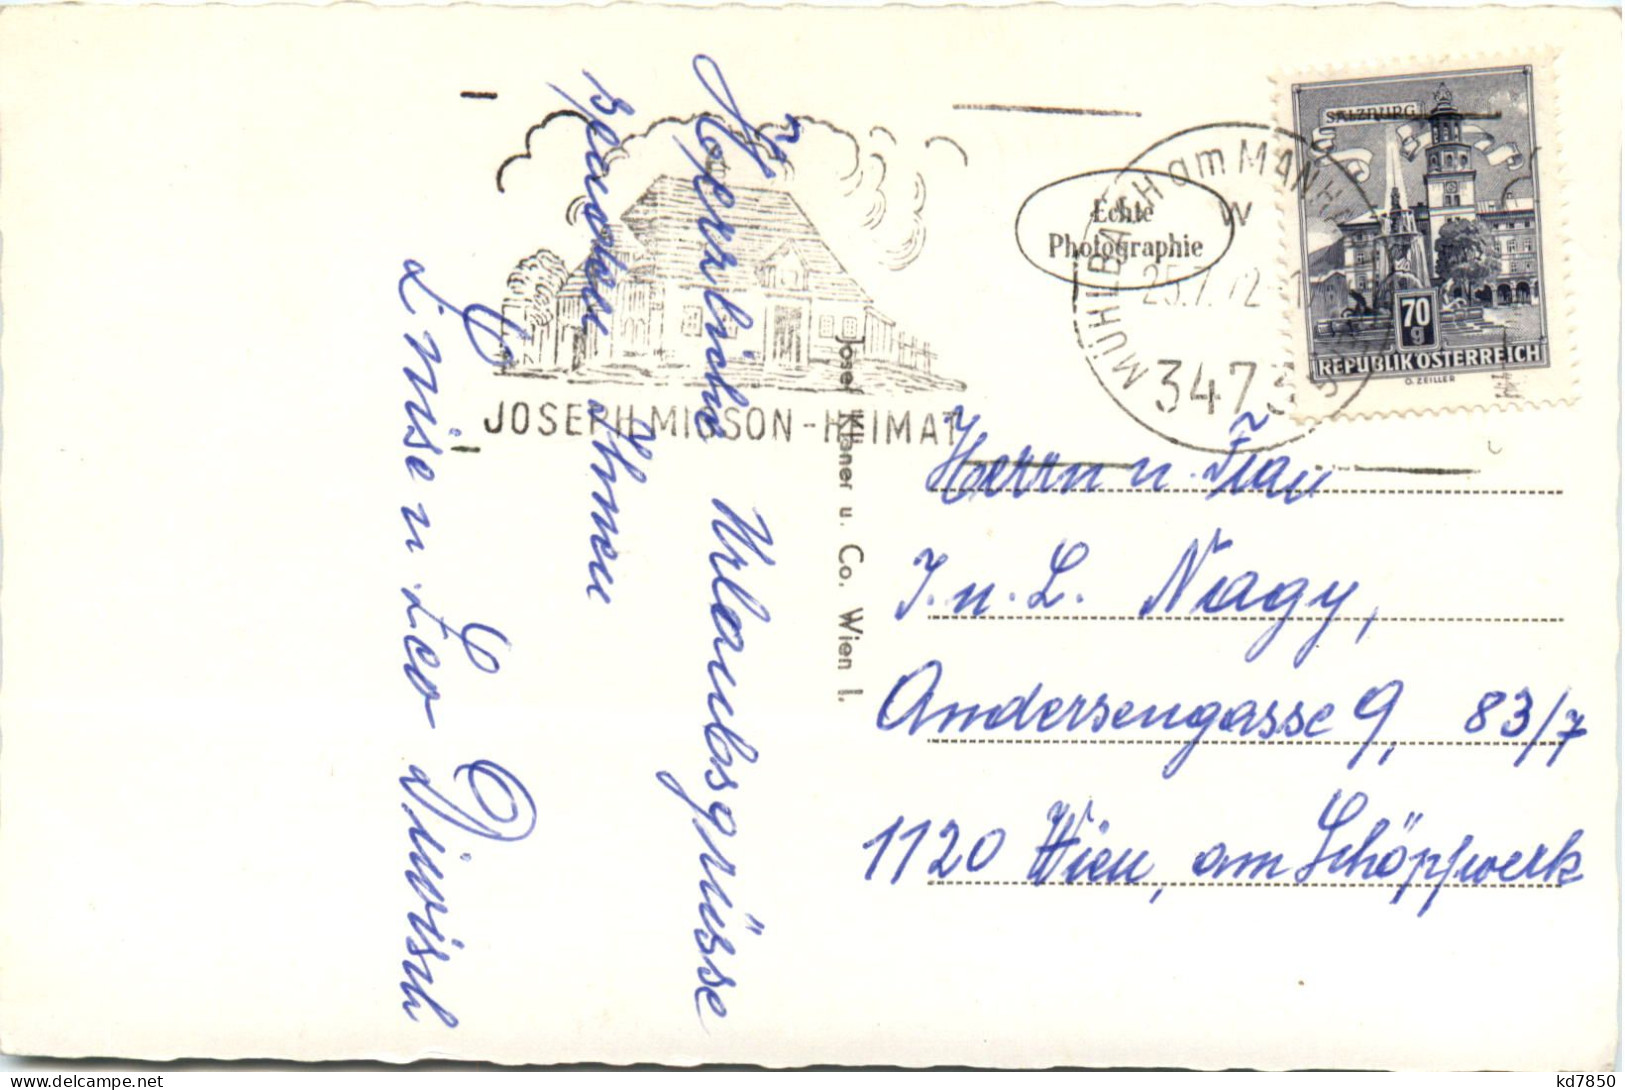 Herrliche Urlaubsgrüsse
Ihnen
Luise u Leo
JOSEPH MISSON-HEIMAT
Echte
Photographie
MÜHLBACH am MANH
W
25.7.72
3473
SALZBURG
70
g
REPUBLIK ÖSTERREICH
O. ZEILLER
u. Co. Wien I.
Herrn u. Frau
J. u. L. Nagy,
Andersengasse 9, 83/7
1120 Wien, am Schöpfwerk
delcampe.net
kd7850